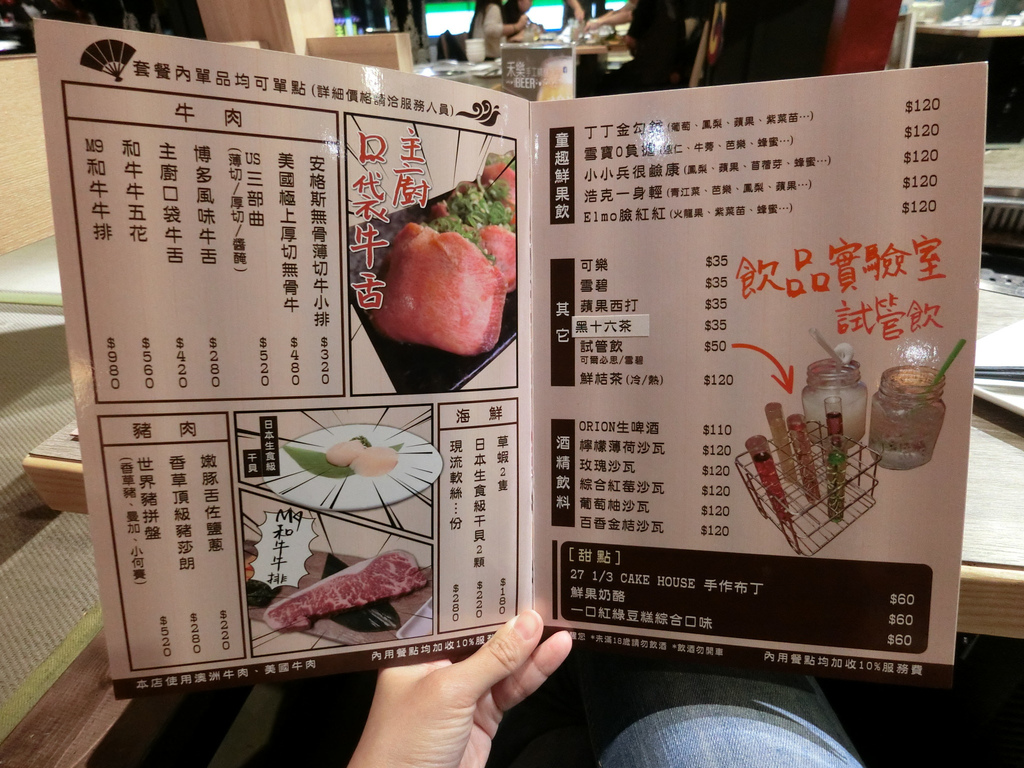 套餐內單品均可單點(詳細價格請洽服務人員)
牛肉
安格斯無骨薄切牛小排 $320
美國極上厚切無骨牛 $480
US三部曲
(薄切/厚切/醬醃) $520
博多風味牛舌 $280
主廚口袋牛舌 $420
和牛牛五花 $560
M9和牛牛排 $980
主廚
口袋牛舌
豬肉
嫩豚舌佐鹽蔥 $220
香草頂級豬莎朗 $280
世界豬拼盤
(香草豬、曼加、小何賽) $520
日本生食級
干貝
M9
和牛牛排
海鮮
草蝦2隻 $180
日本生食級干貝2顆 $220
現流軟絲…份 $280
本店使用澳洲牛肉、美國牛肉
內用餐點均加收10%服務
禾樂
BEER
童趣鮮果飲
丁丁金勾 (葡萄、鳳梨、蘋果、紫菜苗…) $120
雪寶0負 牛蒡、芭樂、蜂蜜…) $120
小小兵很鹼康(鳳梨、蘋果、苜蓿芽、蜂蜜…) $120
浩克一身輕(青江菜、芭樂、鳳梨、蘋果…) $120
Elmo臉紅紅(火龍果、紫菜苗、蜂蜜…) $120
其它
可樂 $35
雪碧 $35
蘋果西打 $35
黑十六茶 $35
試管飲 $50
可爾必思/雪碧
鮮桔茶(冷/熱) $120
飲品實驗室
試管飲
酒精飲料
ORION生啤酒 $110
檸檬薄荷沙瓦 $120
玫瑰沙瓦 $120
綜合紅莓沙瓦 $120
葡萄柚沙瓦 $120
百香金桔沙瓦 $120
[甜點]
27 1/3 CAKE HOUSE 手作布丁 $60
鮮果奶酪 $60
一口紅綠豆糕綜合口味 $60
醒您 *未滿18歲請勿飲酒 *飲酒勿開車
內用餐點均加收10%服務費